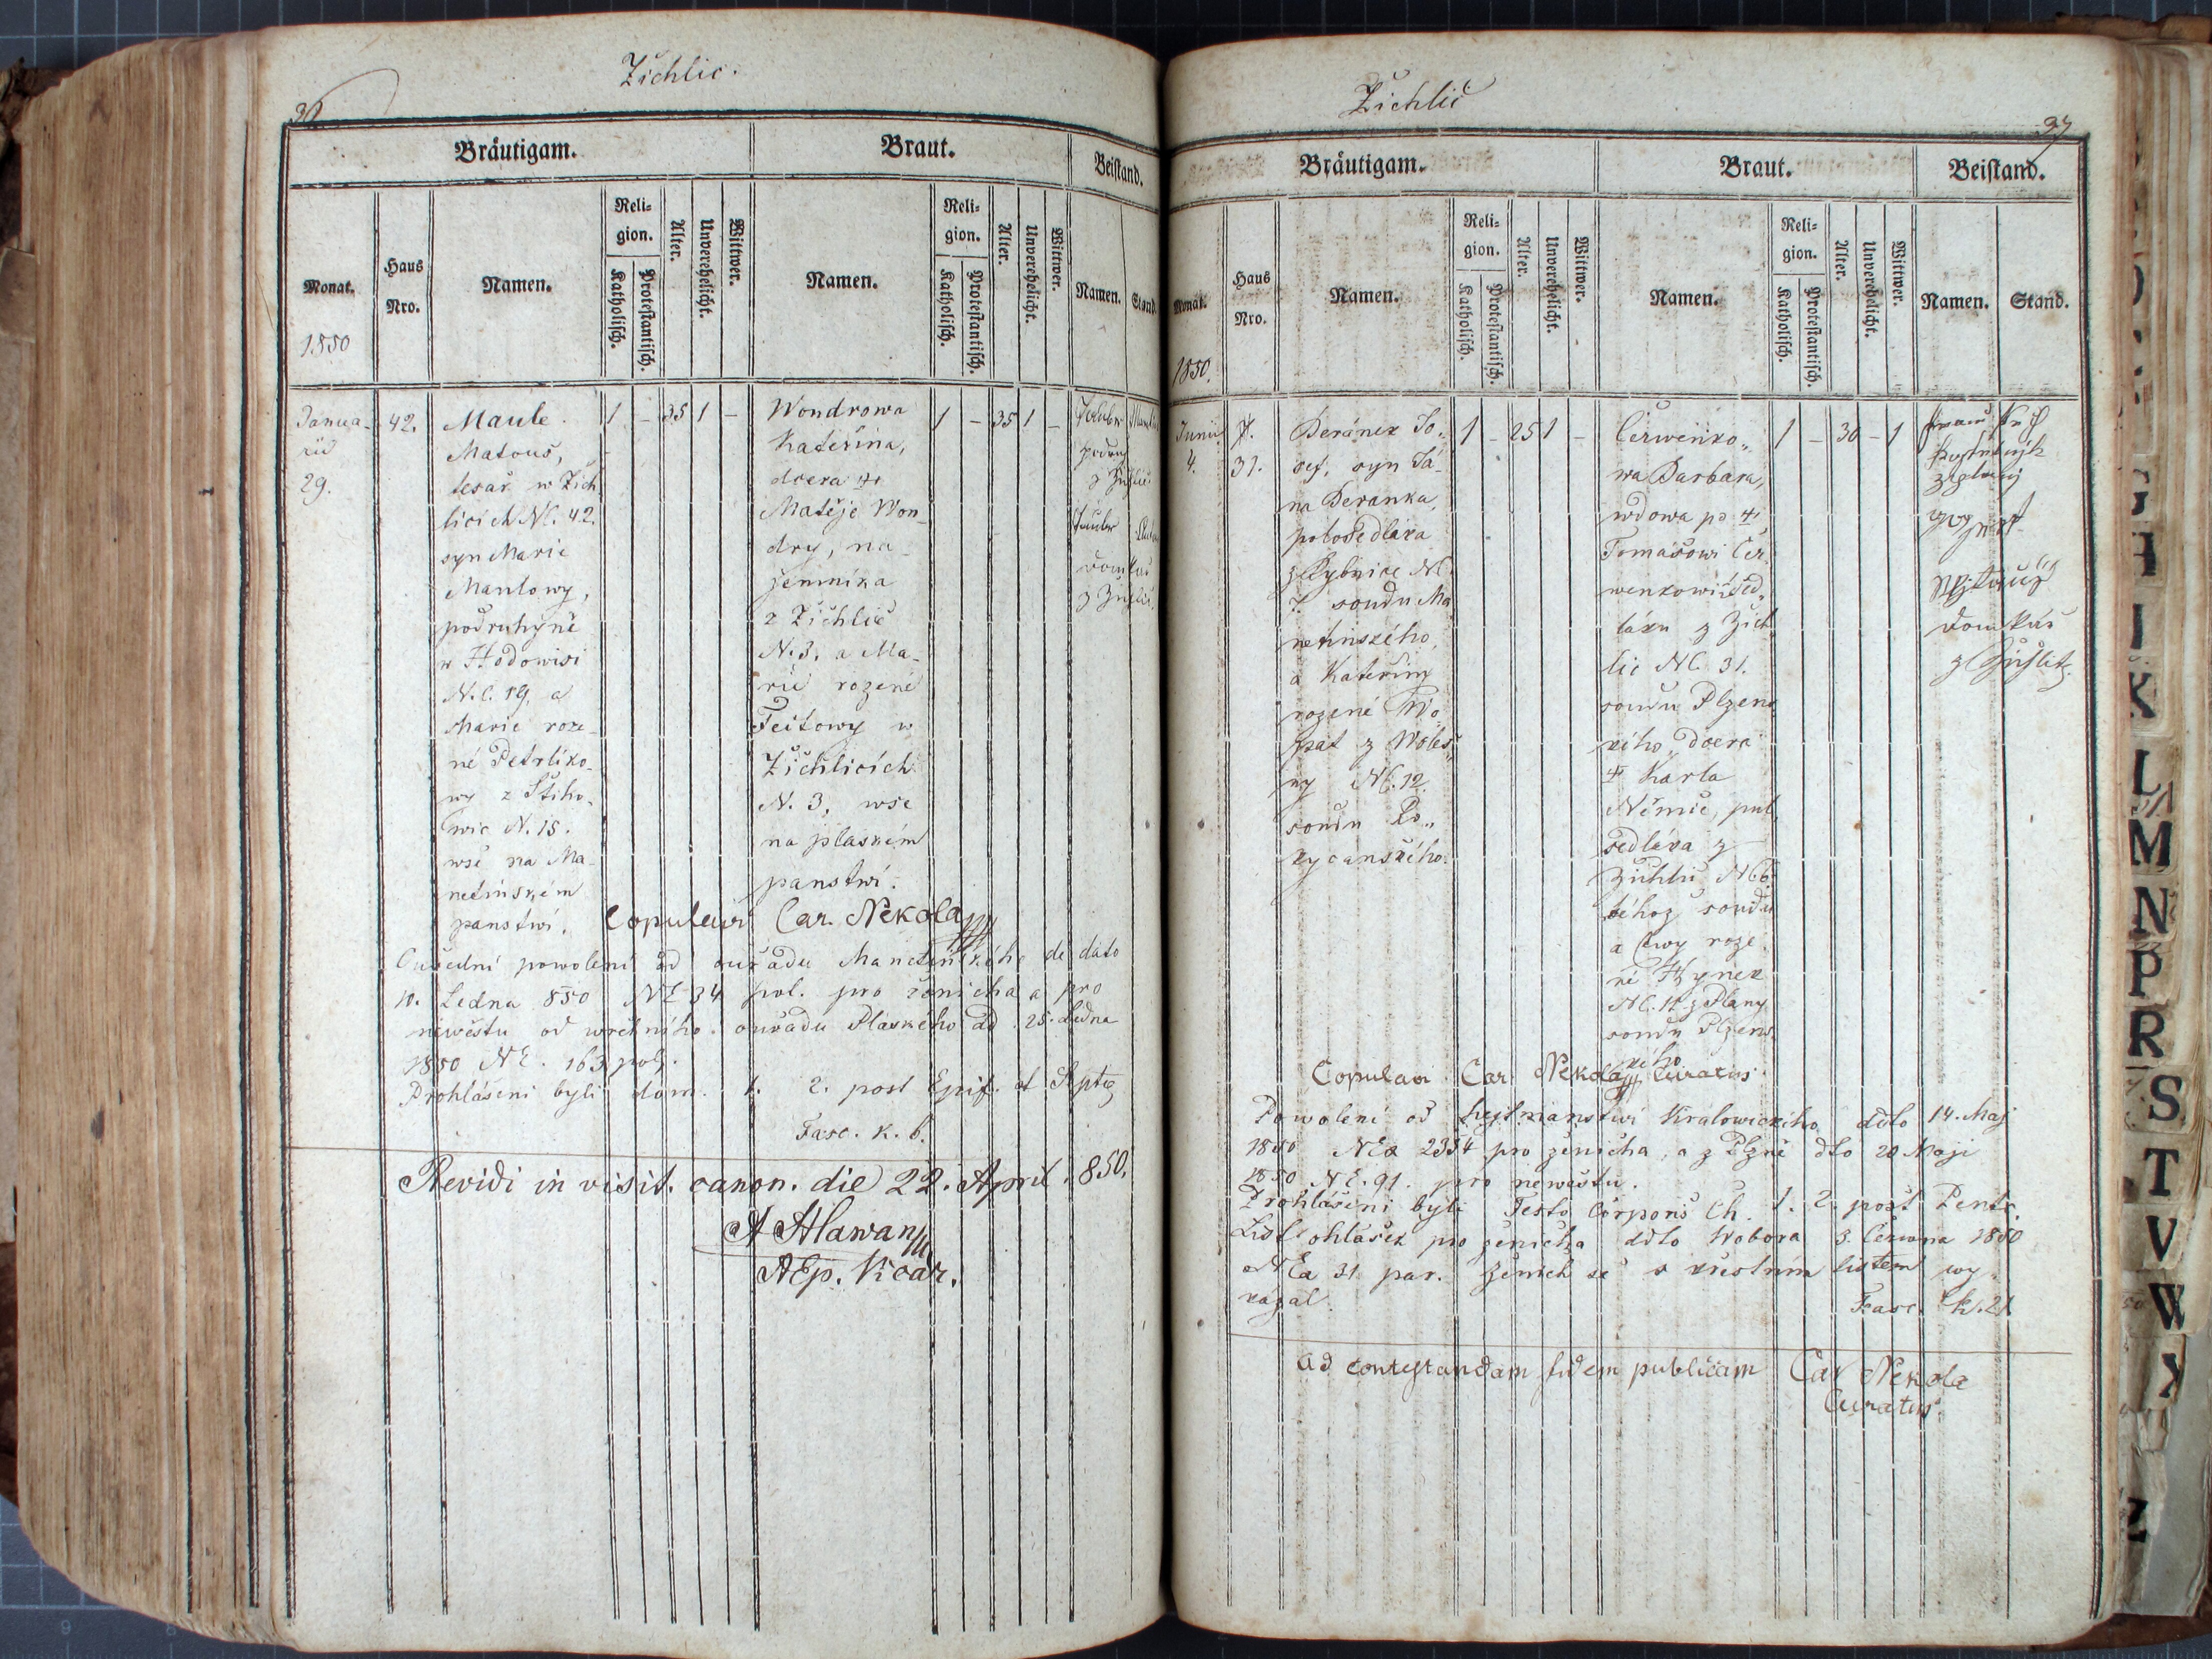 Žichlic.
Bräutigam.
Braut.
Beistand.
Monat.
Haus Nro.
Namen.
Religion.
Katholisch.
Protestantisch.
Alter.
Unverehelicht.
Wittwer.
Namen.
Religion.
Katholisch.
Protestantisch.
Alter.
Unverehelicht.
Wittwer.
Namen.
Stand.
1850
Janua-
rii
29.
42.
Maule
Matouš,
tesař w Žich
licích NC. 42.
syn Marie
Maulowy,
podruhyně
w Hodowisi
N.C. 19, a
Marie roze-
né Petrliko-
wy z Stiho-
wic N. 15.
wše na Ma-
netinském
panstwi.
1 - 35 1 -
Wondrowa
Kateřina,
dcera
Matěje Won-
dry, na-
jemnika
z Žichlic
N. 3. a Ma-
rie rozené
Feitowy w
Žichlicích
N. 3, wše
na plaském
panstwi.
1 - 35 1 -
z Žichlic
domkař
z Žichlic
Copulavi Car. Nekola
Ouřední powolení od ouřadu Manetinského de dato
10. Ledna 850 NE 34 pol. pro ženicha a pro
newěstu od wrchního ouřadu Plaského dd 25. Ledna
1850 NE. 163 polj.
Prohlášeni byli dom. 1. 2. post Epif. et Septg
Fasc. K. 6.
Revidi in visit. canon. die 22. April 850.
A Hlawan
AEp. Vicar.
Žichlic
37
Bräutigam.
Braut.
Beistand.
Monat.
Haus Nro.
Namen.
Religion.
Katholisch.
Protestantisch.
Alter.
Unverehelicht.
Wittwer.
Namen.
Religion.
Katholisch.
Protestantisch.
Alter.
Unverehelicht.
Wittwer.
Namen.
Stand.
1850.
Junii
4.
31.
Beránek Jo„
sef, syn Ja-
na Beranka,
polosedláka
z Rybnice NC
7. soudu Ma
netinského,
a Kateřiny
rozené Wo
pat z Woleš„
ny NC. 12.
soudu Ro„
kycanského.
1 - 25 1 -
Čerwenko„
wa Barbara,
wdowa po
Tomášowi Čer
wenkowi sed„
láku z Žich
lic NC. 31.
soudu Plzens
kého, dcera
Karla
Němce, pul
sedláka z
Žichlic NC 6
téhož soudu
a Ewy roze
né Hynek
NC. 11 z Plany
soudu Plzens
kého
1 - 30 - 1
domkař
z Žichlitz.
Copulavi Car Nekola Curatus
Powolení od hejtmanstwi Kralowického ddto 14. Maj
1850 NEx 2354 pro ženicha, a z Plzně dto 20 Maji
1850 NE. 91. pro newěstu.
Prohlášeni byli Festo Corporis Ch. 1. 2. post Pente.
List ohlášek pro ženicha ddto Wobora 3. Června 1850
NEa 31 par. Ženich se s křestnim listem wy
kázal.
Fasc. K. 21
Ad contestandam fidem publicam Car Nekola
Curatus
L
M
N
P
R
S
T
V
W
Z